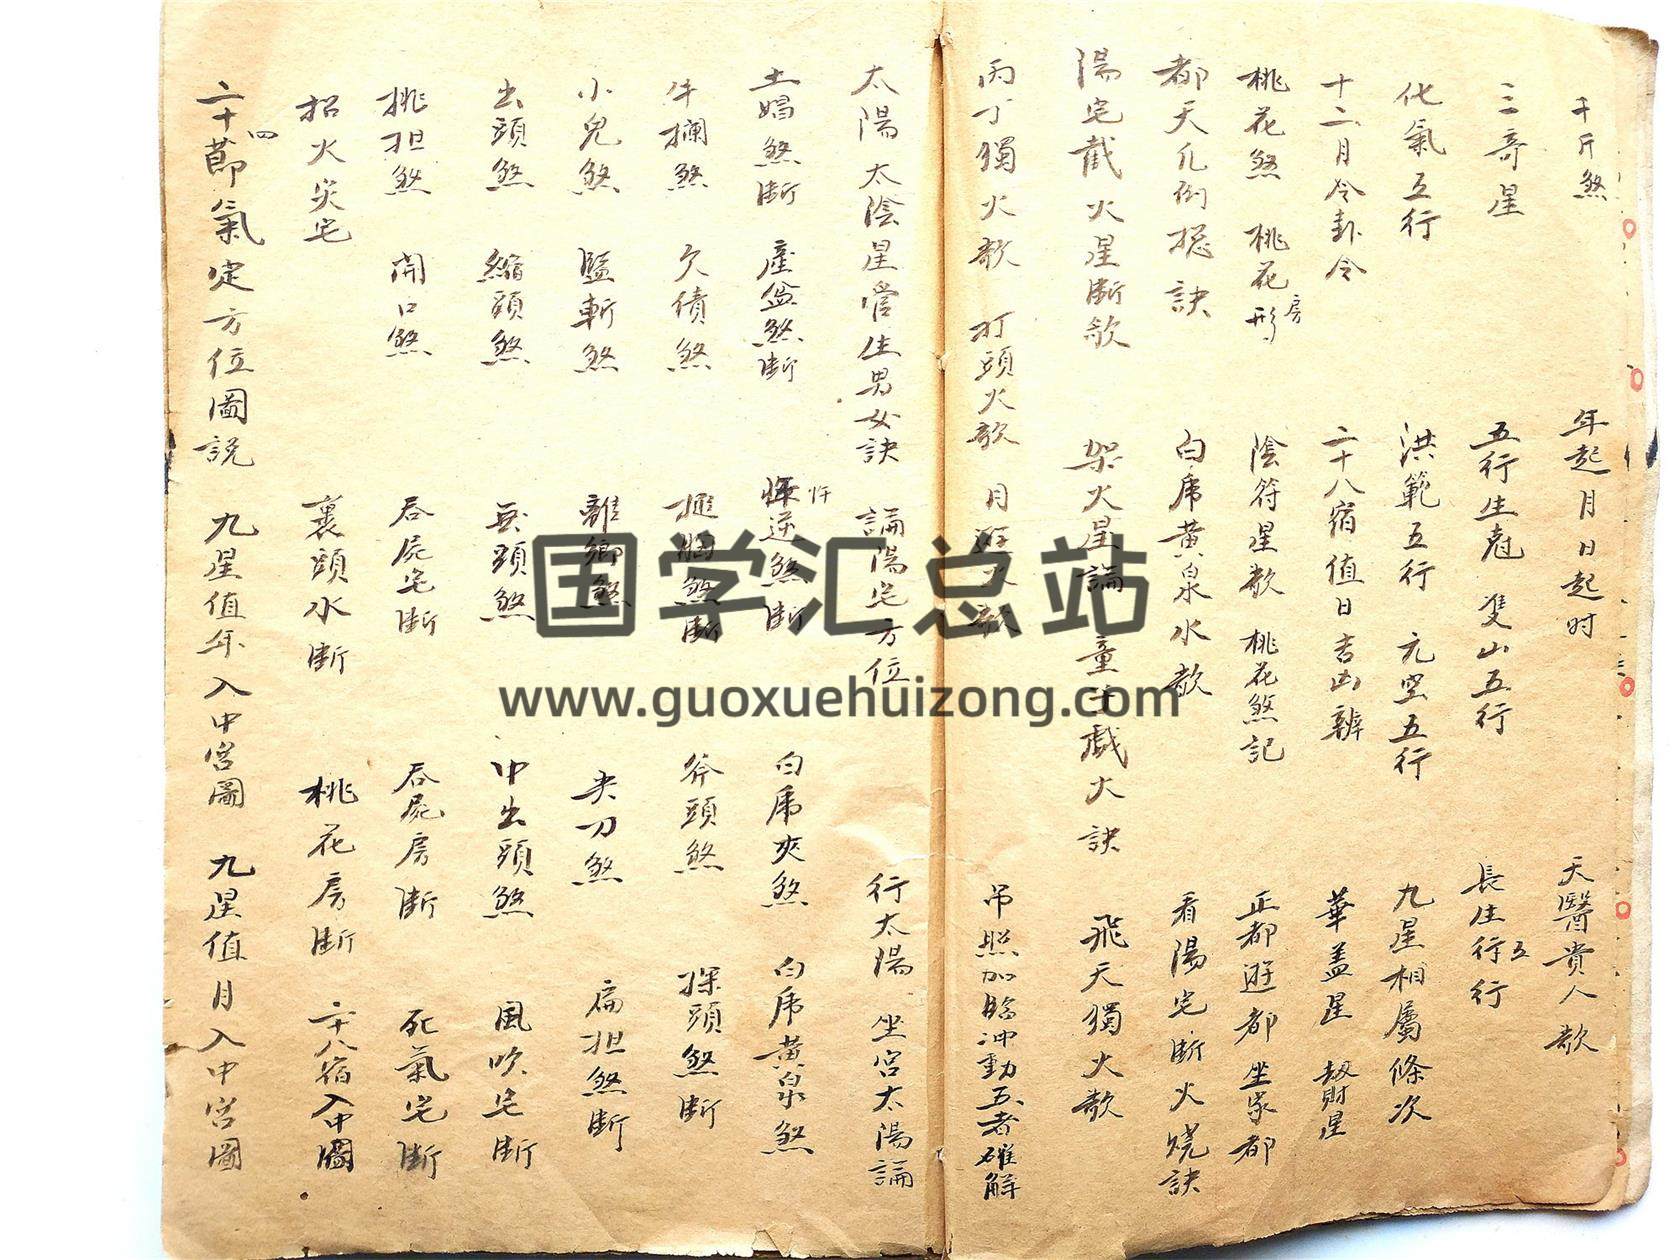 千斤煞 年起月日起时 天醫貴人歌
三奇星 五行生尅 雙山五行 長生五行行
化氣五行 洪範五行 元空五行 九星相屬條次
十二月令卦令 二十八宿值日吉凶辨 華盖星 劫財星
桃花煞 桃花房形 陰符星歌 桃花煞記 正都遊都坐家都
都天几例捴訣 白虎黄泉水歌 看陽宅断火燒訣
陽宅截火星断歌 架火星論 童子戲火訣 飛天獨火歌
丙丁獨火歌 打頭火歌 月遊火歌 吊照加臨冲動五者確解
太陽太陰星管生男女訣 論陽宅方位 行太陽 坐宮太陽論
土媢煞断 產盆煞断 忤逆煞断 白虎夾煞 白虎黄泉煞
牛攔煞 欠債煞 搥胸煞断 斧頭煞 探頭煞断
小兒煞 監斬煞 離鄉煞 夹刀煞 扁担煞断
出頭煞 縮頭煞 無頭煞 中出頭煞 風吹宅断
挑担煞 開口煞 吞屍宅断 吞屍房断 死氣宅断
招火災宅 裹頭水断 桃花房断 二十八宿入中圖
二十四節氣定方位圖説 九星值年入中宮圖 九星值月入中宮圖
国学汇总站
www.guoxuehuizong.com